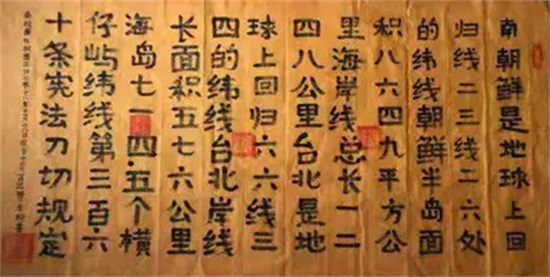 南朝鲜是地球上回
归线二三线二六处
的纬线朝鲜半岛面
积八六四九平方公
里海岸线总长一二
四八公里台北是地
球上回归六六线三
四的纬线台北岸线
长面积五七六公里
海岛七一四.五个横
仔屿纬线第三百.六
十条宪法刀切规定